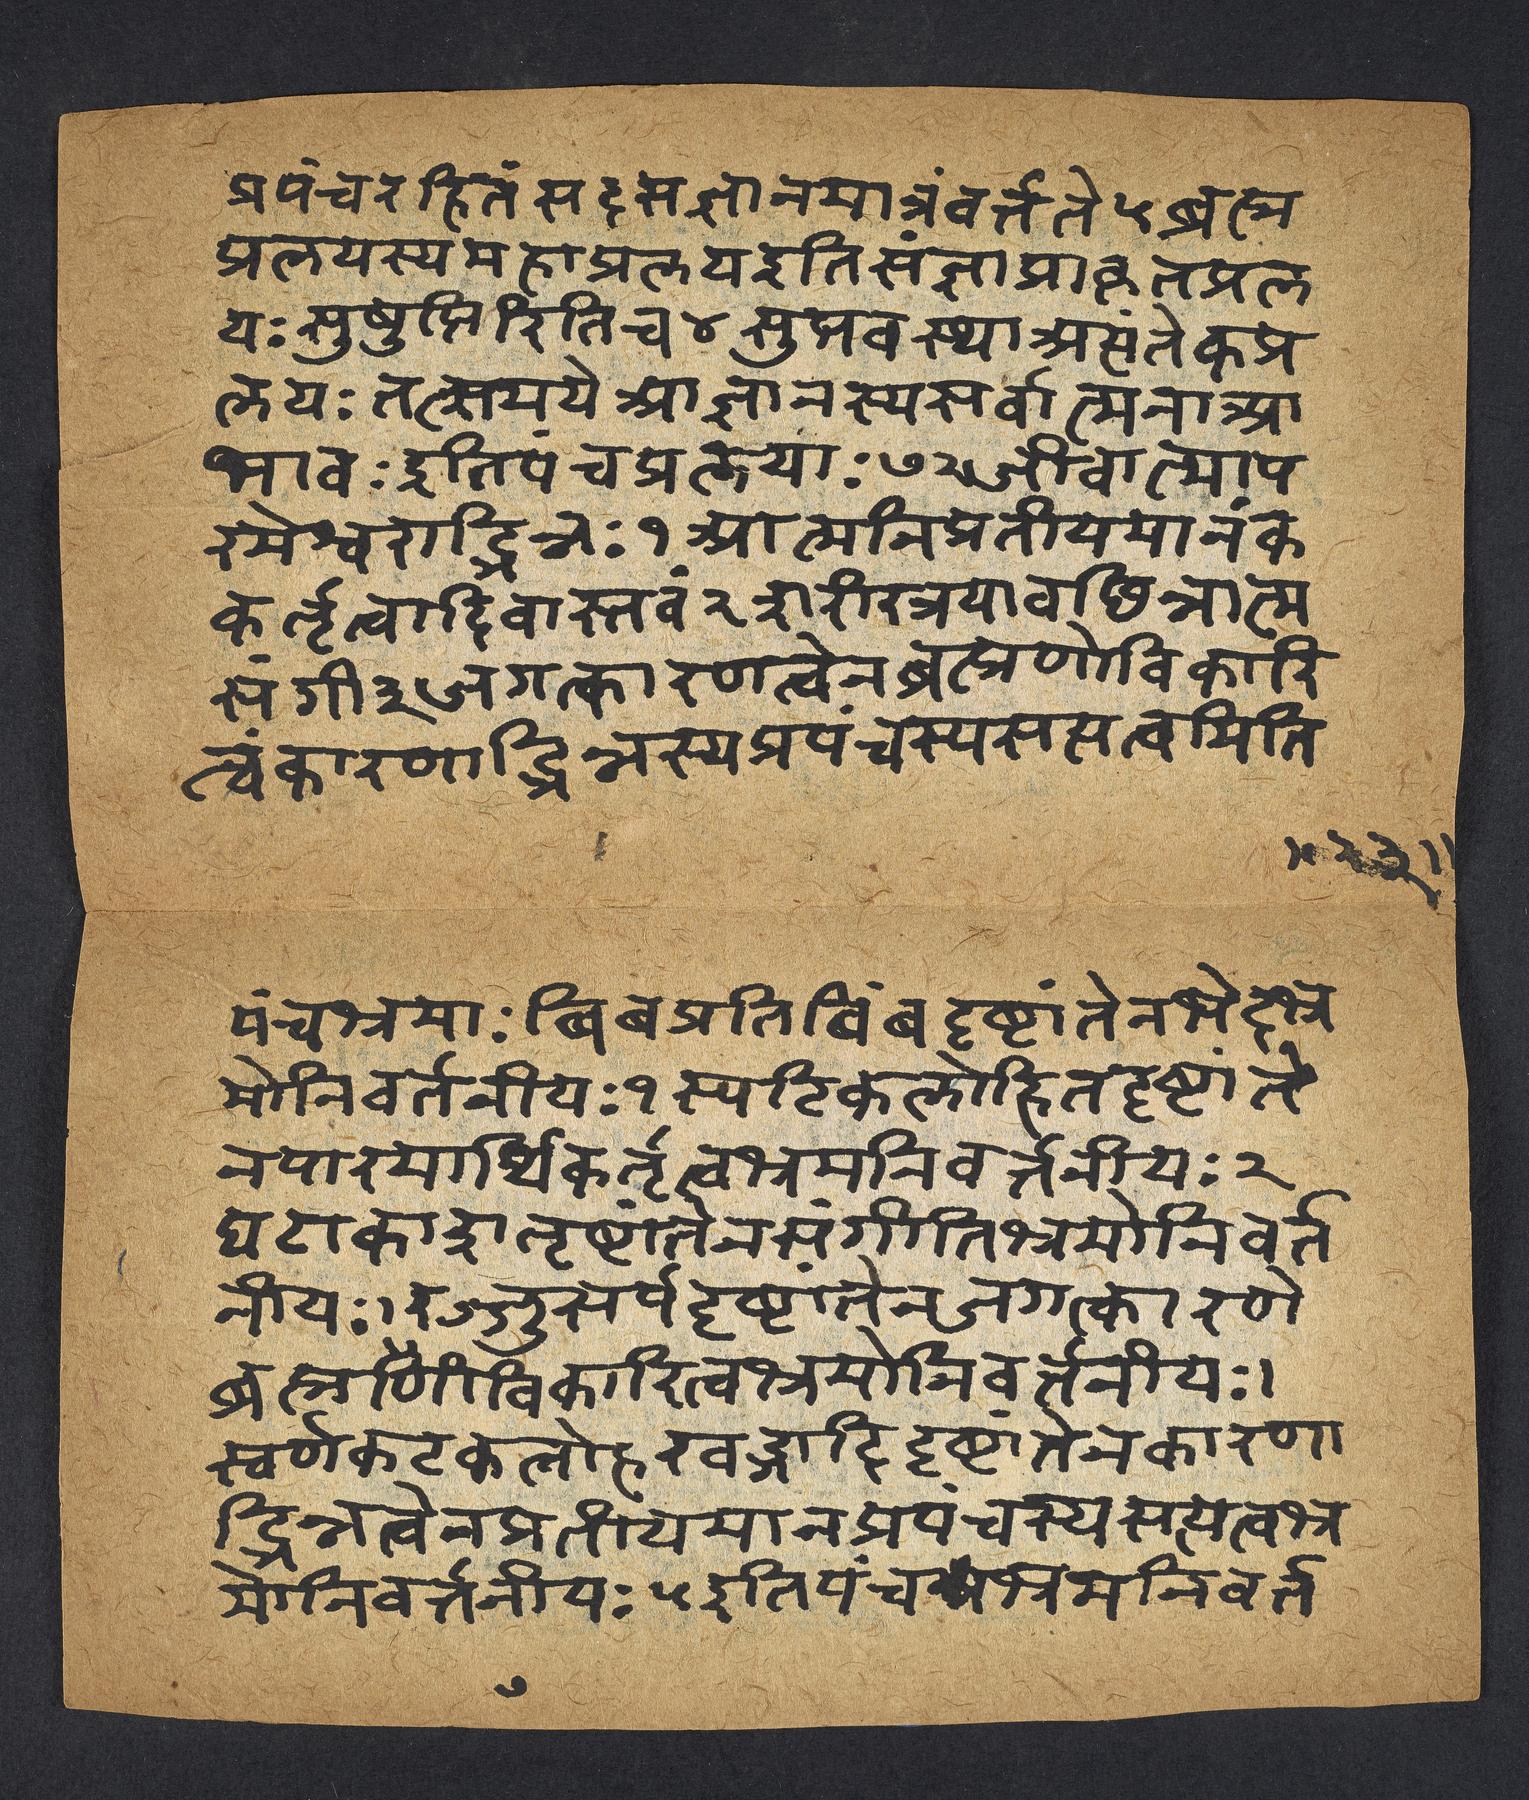 प्रपंचरहितं सद्दसज्ञानमात्रं वर्त्तते ५ ब्रह्म
प्रलयस्य महाप्रलय इति संज्ञा प्राकृतप्रल
यः सुषुप्तिरिति च ४ सुप्तवस्था असंतेकप्र
लयः तत्समये आज्ञानस्य सर्वात्मना आ
भावः इति पंचप्रलयाः ७२ जीवात्मा प
रमेश्वराद्भिन्नः १ आत्मनि प्रतीयमानं क
कर्तृत्वादि वास्तवं २ शरीरत्रयावछिन्नात्म
संगी ३ जगत्कारणत्वेन ब्रह्मणो विकारि
त्वं कारणाद्भिन्नस्य प्रपंचस्य ससत्वमिति
॥२३॥
पंचभ्रमाः बिंबप्रतिबिंबदृष्टांतेन भेदभ्र
मो निवर्तनीयः १ स्पटिकलोहितदृष्टांते
न पारमार्थिकर्तृत्वभ्रम निवर्त्तनीयः २
घटाकाशदृष्टांतेन संगीति भ्रमो निवर्त
नीयः। रज्जुसर्पदृष्टांतेन जगत्कारणे
ब्रह्मणौ विकारित्वभ्रमो निवर्तनीयः।
स्वर्णकटकलोहखड्गादिदृष्टांतेन कारणा
द्भिन्नत्वेन प्रतीयमानप्रपंचस्य सत्यत्वभ्र
मो निवर्त्तनीयः ५ इति पंच भ्रमनिवर्त